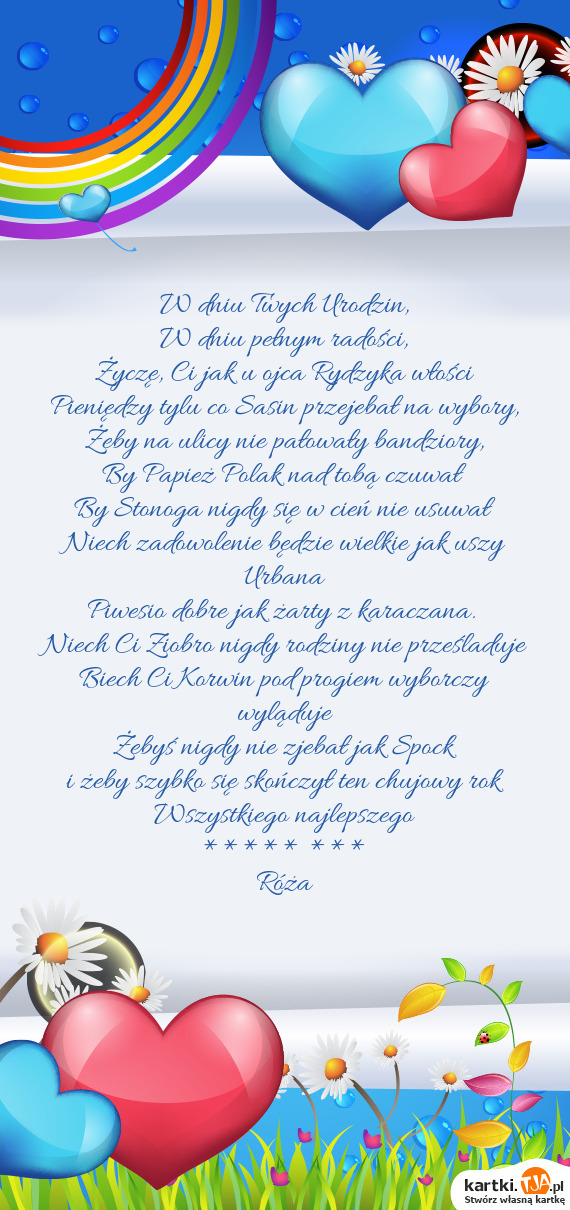 W dniu Twych Urodzin,
W dniu pełnym radości,
Życzę, Ci jak u ojca Rydzyka włości
Pieniędzy tylu co Sasin przejebał na wybory,
Żeby na ulicy nie pałowały bandziory,
By Papież Polak nad tobą czuwał
By Stonoga nigdy się w cień nie usuwał
Niech zadowolenie będzie wielkie jak uszy
Urbana
Piwesio dobre jak żarty z karaczana.
Niech Ci Ziobro nigdy rodziny nie prześladuje
Biech Ci Korwin pod progiem wyborczy
wyląduje
Żebyś nigdy nie zjebał jak Spock
i żeby szybko się skończył ten chujowy rok
Wszystkiego najlepszego
* * * * *  * * *
Róża
kartki.TJA.pl
Stwórz własną kartkę